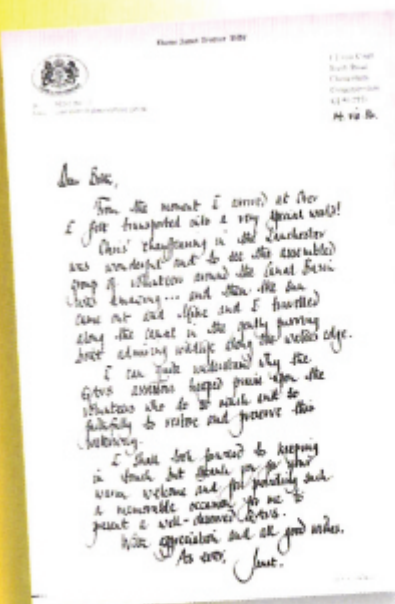 Dame Janet Trotter DBE
Dear
From the moment I arrived at Over
I felt transported into a very special world!
Chris' chauffeuring in the Lanchester
was wonderful and to see the assembled
group of volunteers around the Canal Basin
was amazing... and then the sun
came out and and I travelled
along the canal in the gently purring
boat admiring wildlife along the water's edge.
I can quite understand why the
QAVS assessors heaped praise upon the
volunteers who do so much and so
faithfully to restore and preserve this
waterway.
I shall look forward to keeping
in touch but thank you for your
warm welcome and for providing such
a memorable occasion for me to
present a well-deserved QAVS.
With appreciation and all good wishes,
As ever,
Janet.